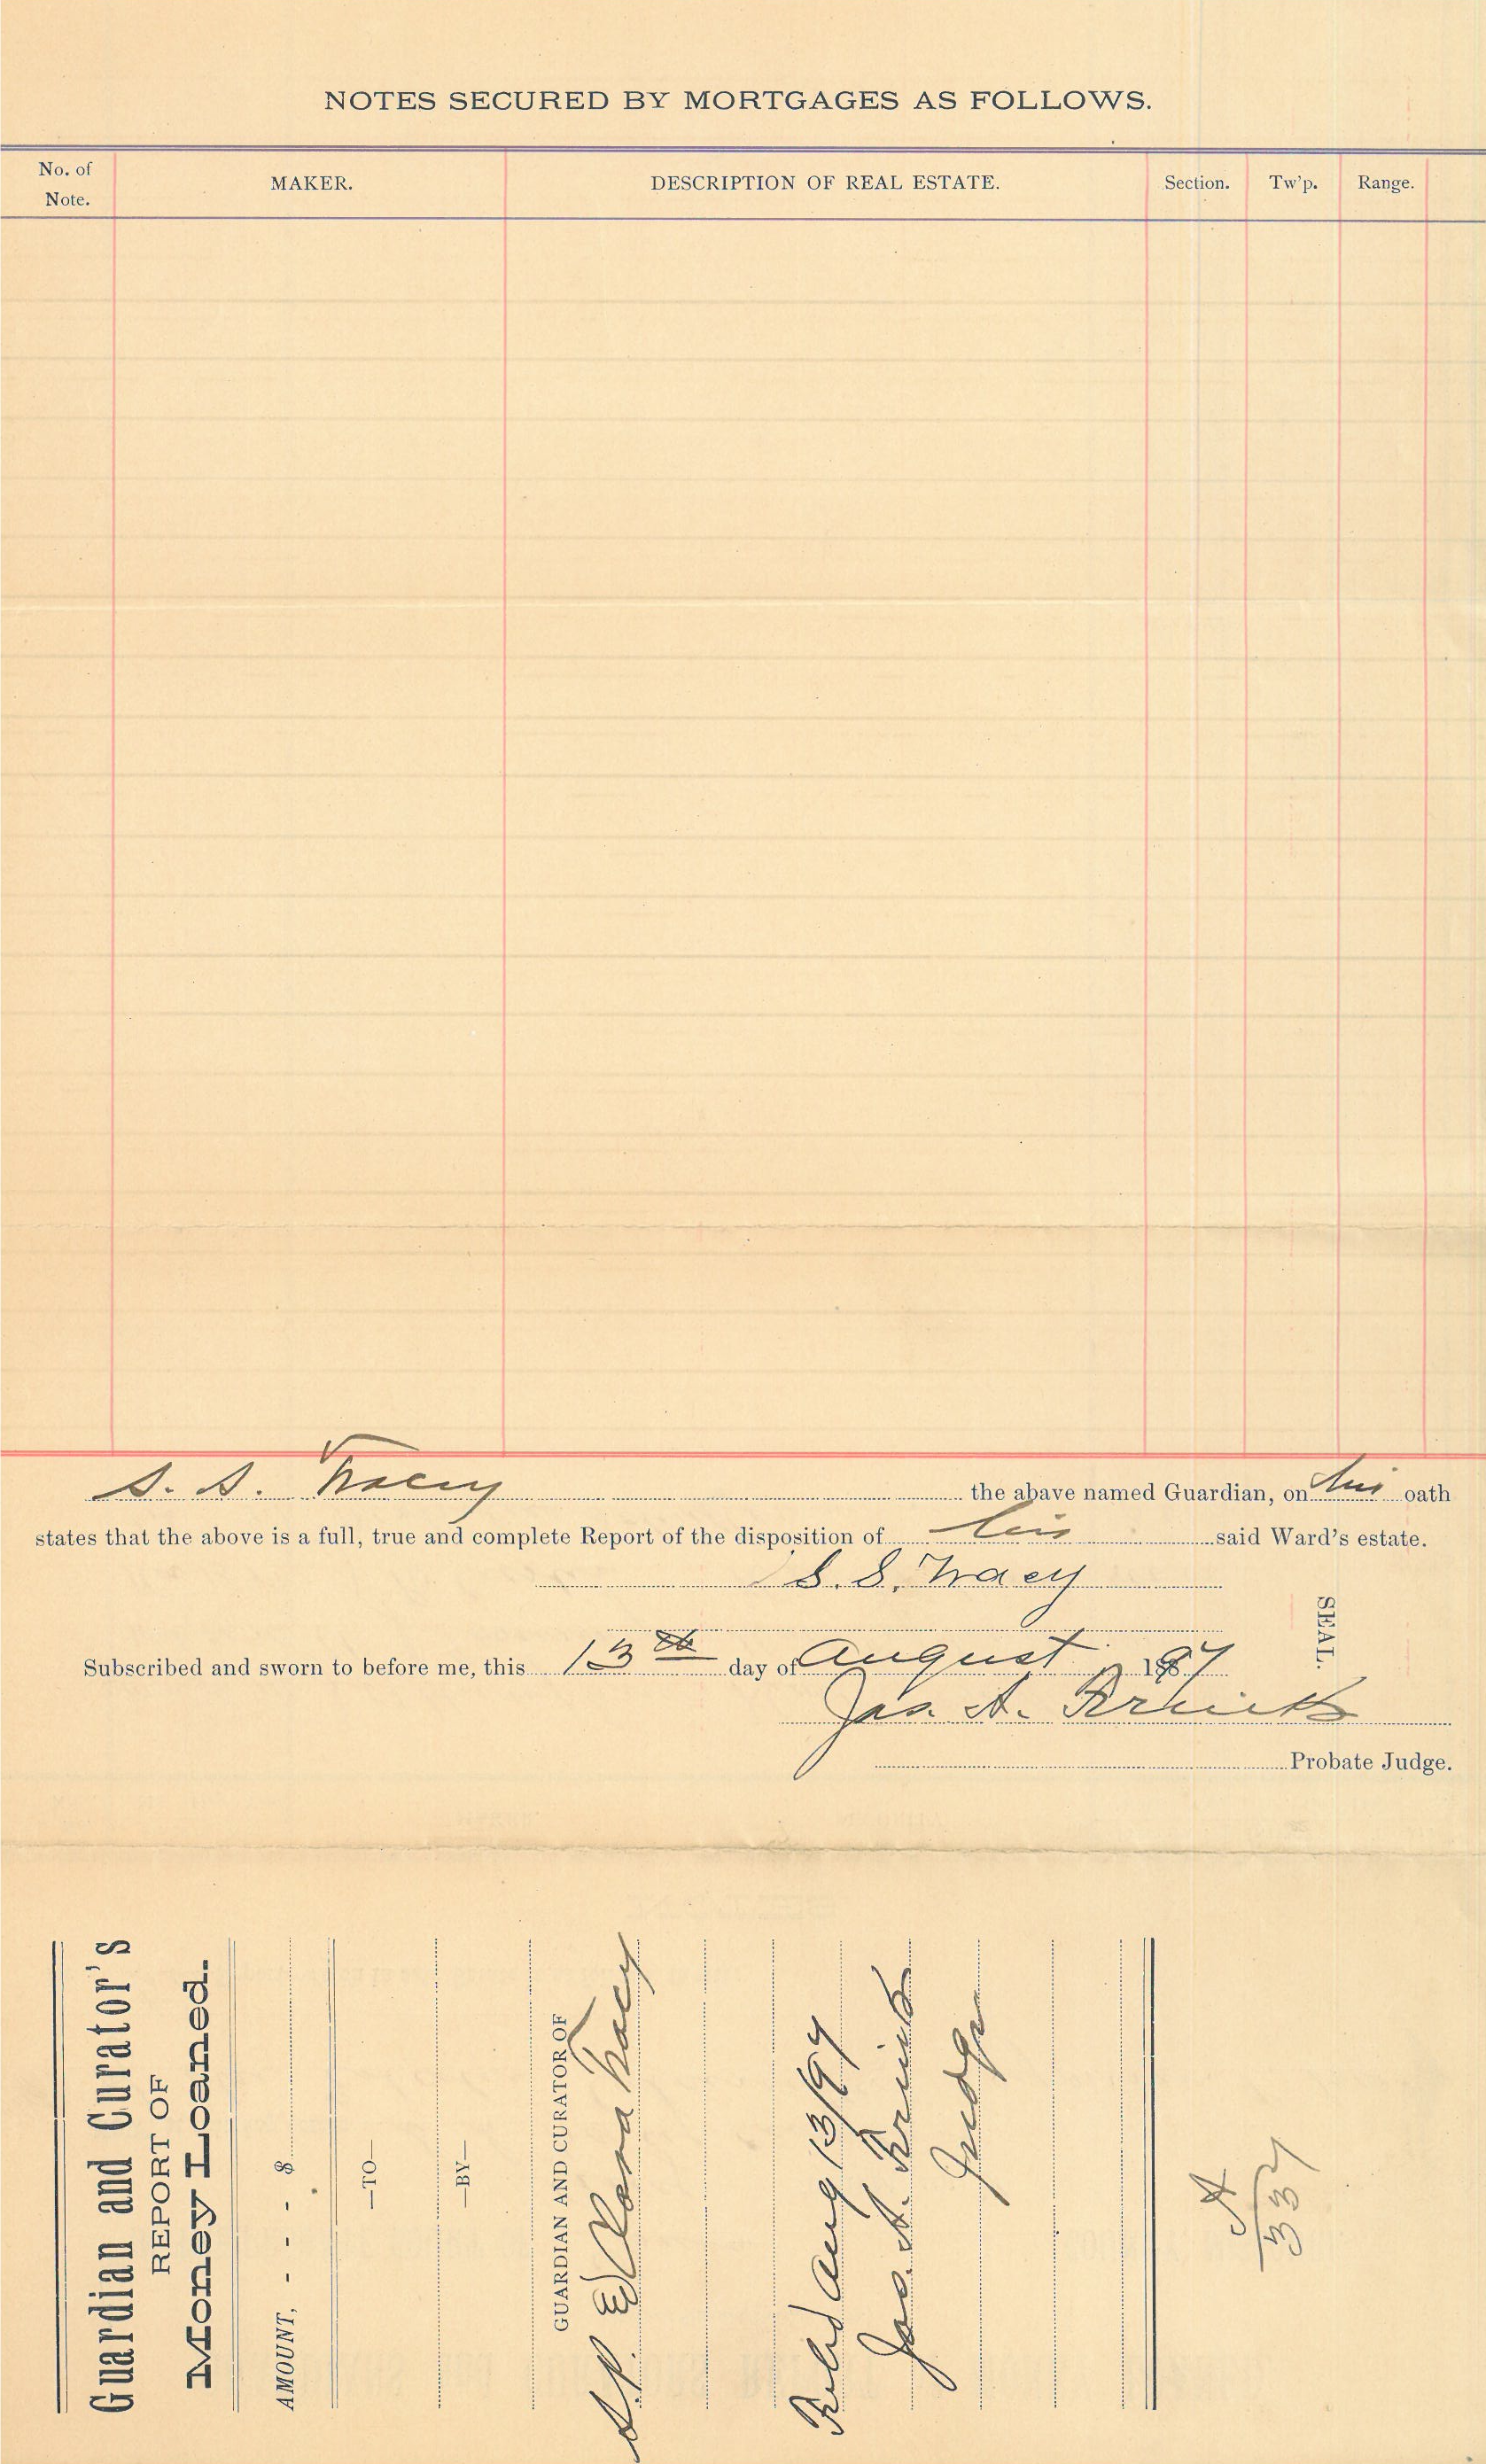 NOTES SECURED BY MORTGAGES AS FOLLOWS.
No. of Note. MAKER. DESCRIPTION OF REAL ESTATE. Section. Tw'p. Range.
S. S. Tracy the above named Guardian, on his oath
states that the above is a full, true and complete Report of the disposition of his said Ward's estate.
S. S. Tracy
SEAL.
Subscribed and sworn to before me, this 13th day of August 1897
Jas. A.
Probate Judge.
Guardian and Curator's
REPORT OF
Money Loaned.
AMOUNT, - - - $
—TO—
—BY—
GUARDIAN AND CURATOR OF
Tracy
Filed Aug 13/97
Jas. A.
Judge
A
337